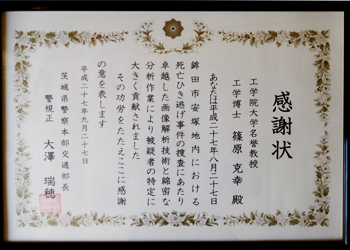 感謝状
工学院大学名誉教授
工学博士 篠原克幸 殿
あなたは平成二十七年八月二十七日
鉾田市安塚地内における
死亡ひき逃げ事件の捜査にあたり
卓越した画像解析技術と綿密な
分析作業により被疑者の特定に
大きく貢献されました
その功労をたたえここに感謝
の意を表します
平成二十七年九月二十七日
茨城県警察本部交通部長
警視正 大澤瑞穂